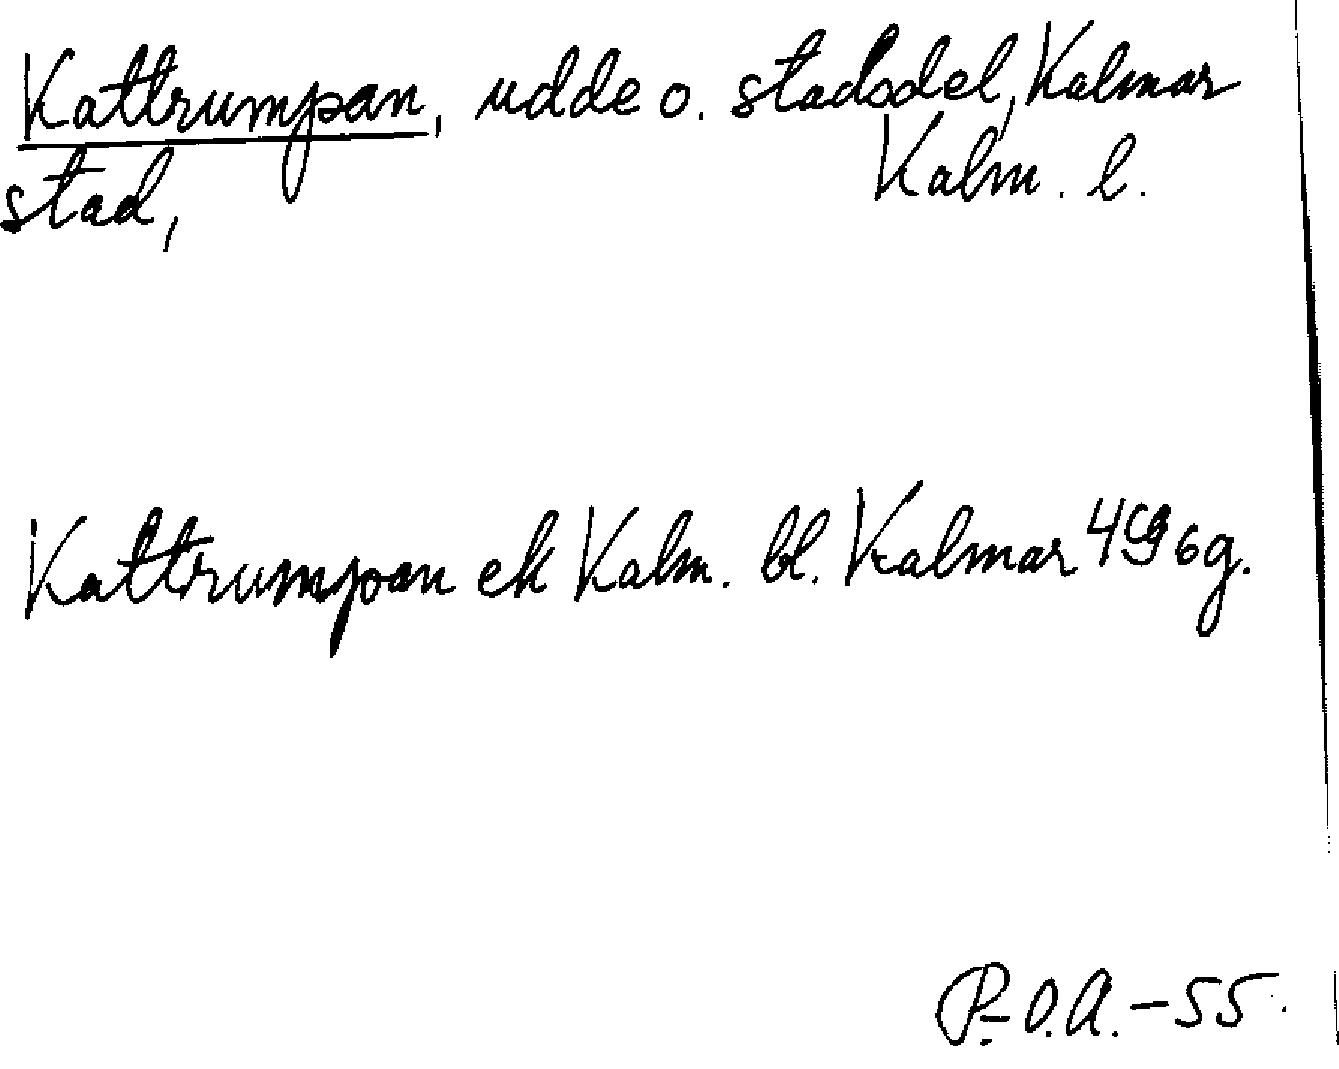 Kattrumpan, udde o. stadsdel, Kalmar
stad, Kalm. l.
Kattrumpan ek Kalm. bl. Kalmar 4996g.
P.-O.A.-55.